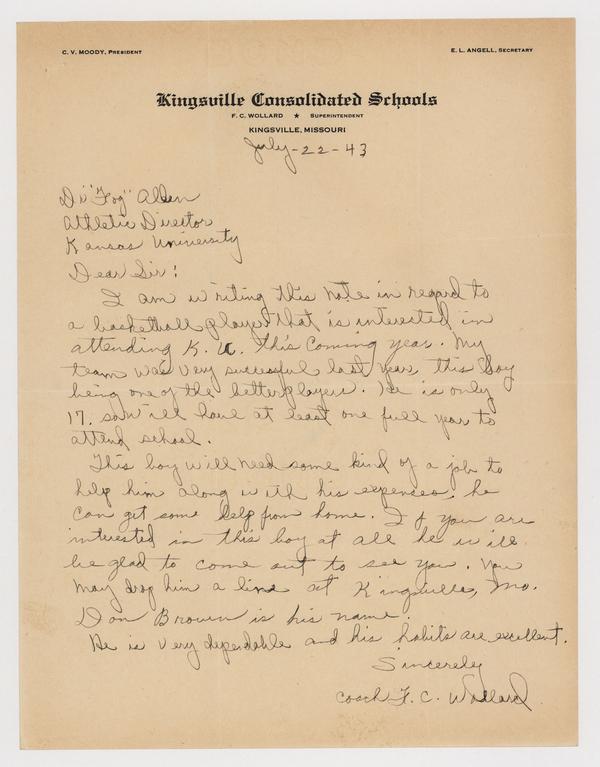 C. V. MOODY, PRESIDENT
E. L. ANGELL, SECRETARY
Kingsville Consolidated Schools
F. C. WOLLARD ★ SUPERINTENDENT
KINGSVILLE, MISSOURI
July-22-43
Dr "Fog" Allen
Athletic Director
Kansas University
Dear Sir:
I am writing this note in regard to
a basketball player that is interested in
attending K. U. this coming year. My
team was very successful last year, this boy
being one of the better players. He is only
17. so will have at least one full year to
attend school.
This boy will need some kind of a job to
help him along with his expenses. he
can get some help from home. If you are
interested in this boy at all he will
be glad to come out to see you. You
may drop him a line at Kingsville, Mo.
Don Brown is his name.
He is very dependable and his habits are excellent.
Sincerely
Coach F. C. Wollard